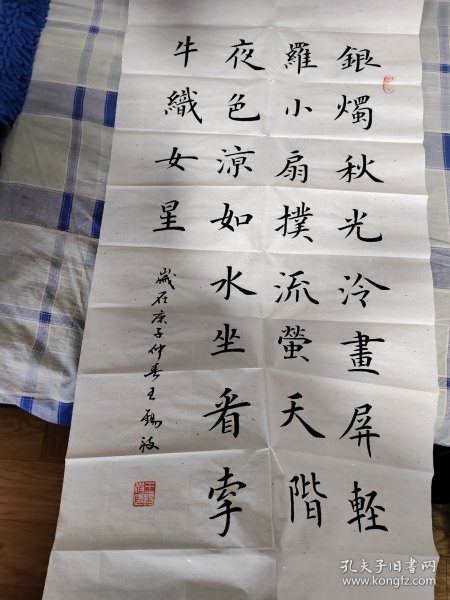 銀燭秋光冷畫屏輕
羅小扇撲流螢天階
夜色涼如水坐看牽
牛織女星
歲在庚子仲春王
孔夫子旧书网
www.kongfz.com